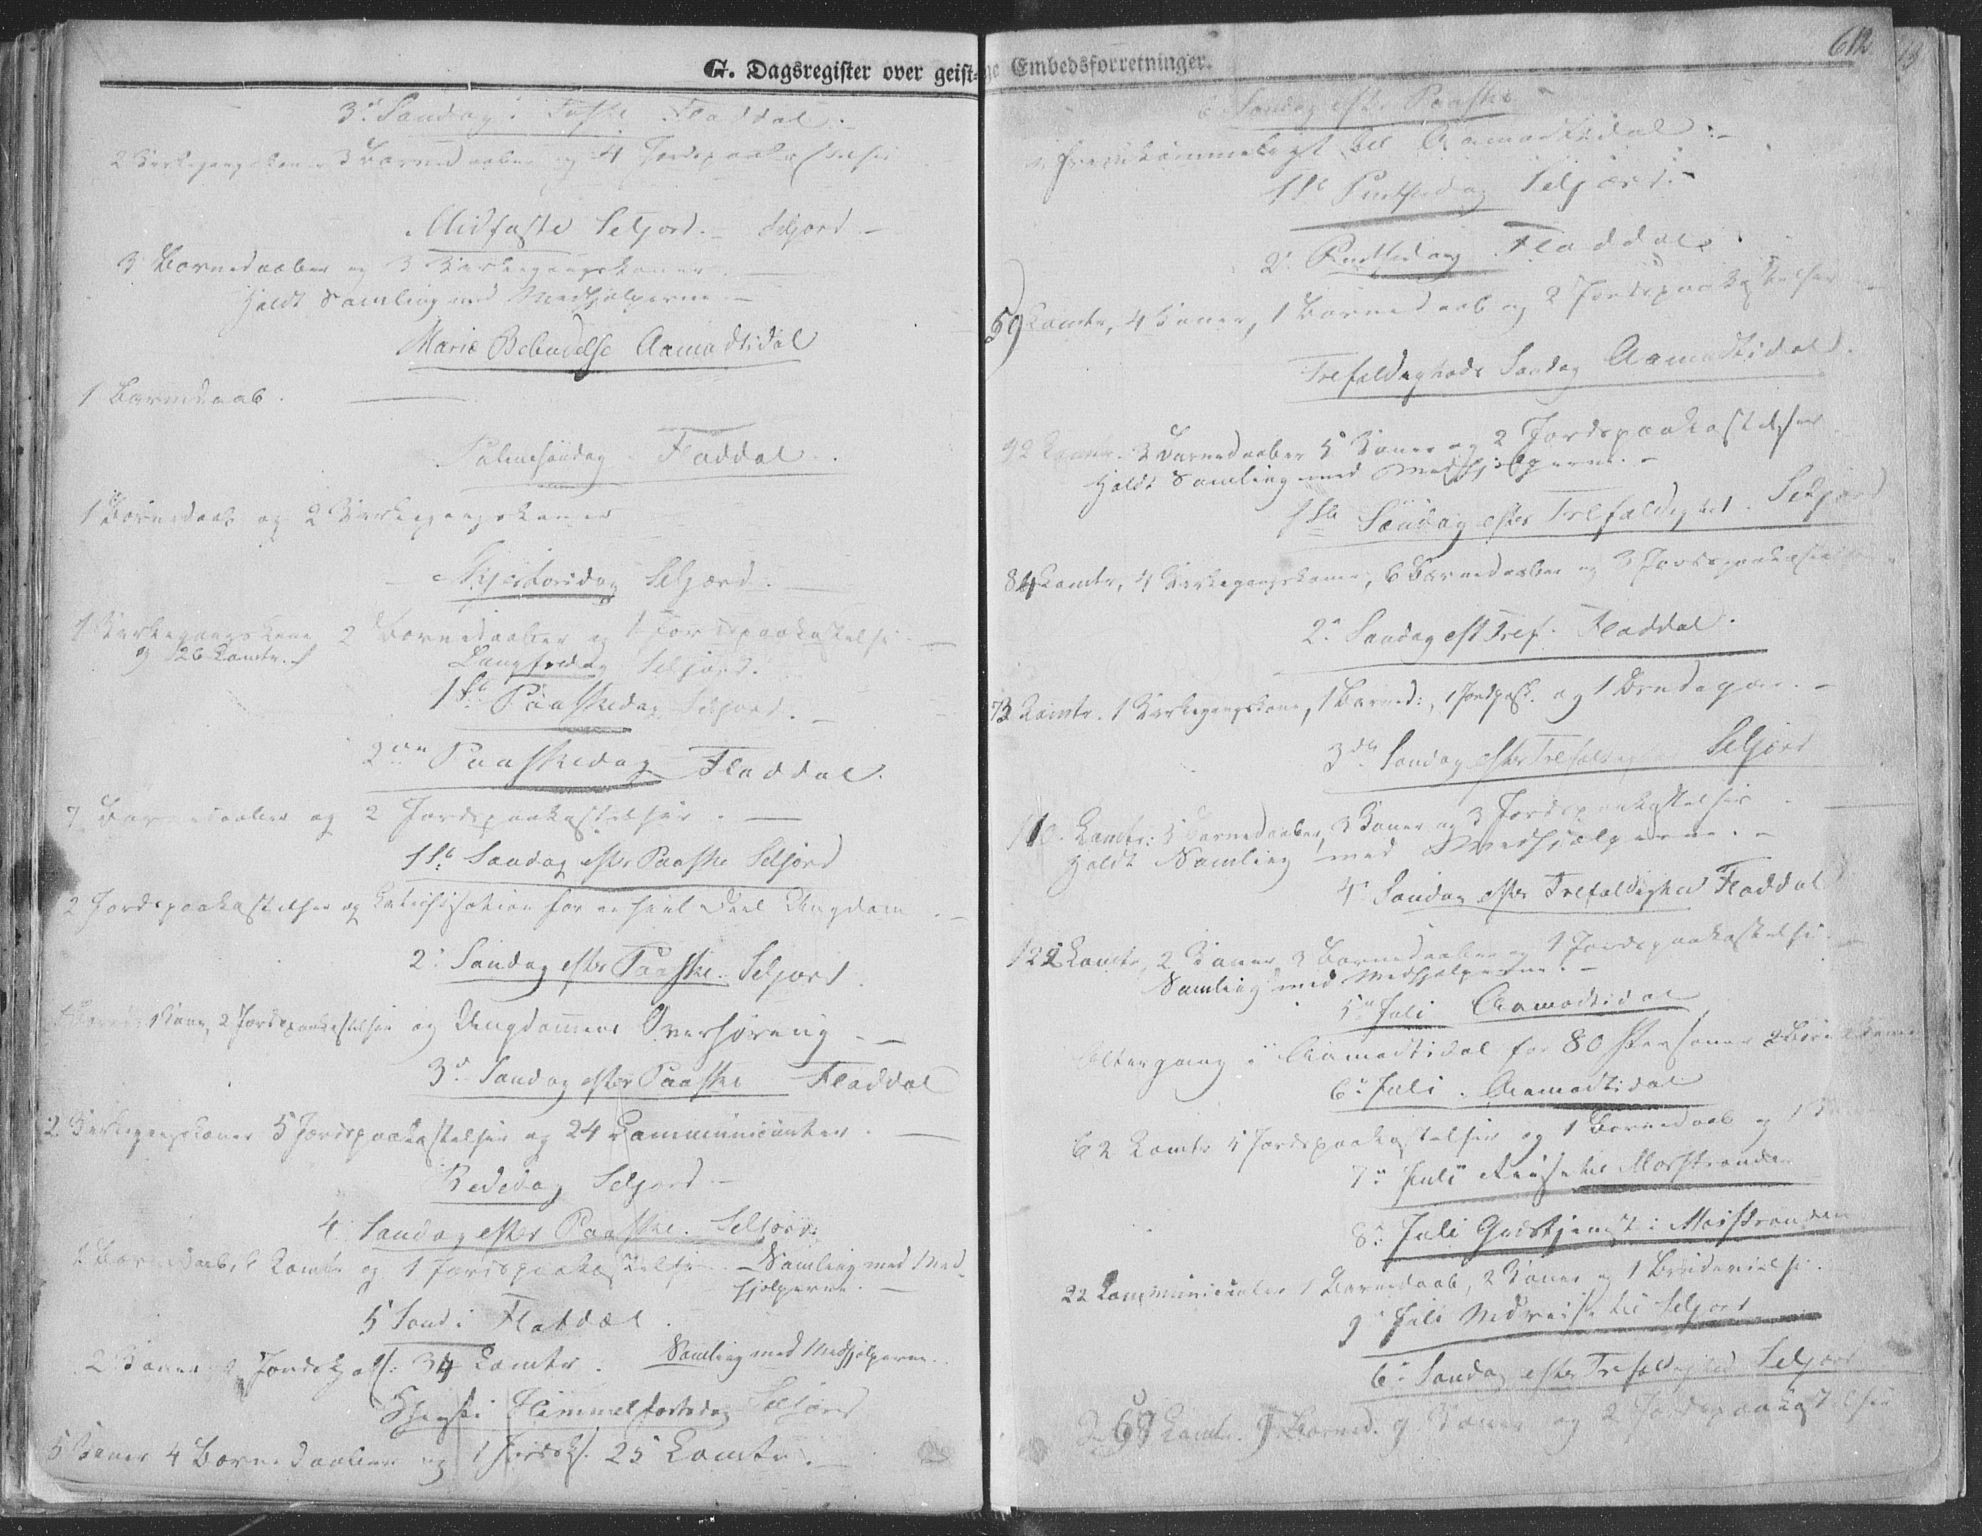 G. Dagsregister over geist-
3d Søndag i Faste Fladdal.
2 Kirkegangskoner 3 Barnedaaber og 4 Jordspaakastelser
Midfaste Seljord. Seljord
3 Barnedaaber og 3 Kirkegangskoner.
Holdt Samling med Medhjælperne
Mariæ Bebudelse Aamodtsdal
1 Barnedaab.
Palmesøndag Fladdal.
1 Barnedaab og 2 Kirkegangskoner
Skjertorsdag Seljord.
1 Kirkegangskone 2 Barnedaaber og 1 Jordspaakastelse.
og 126 Comtr.
Langfredag Seljord.
1ste Paaskedag Seljord.
2den Paaskedag Fladdal.
7 Barnedaaber og 2 Jordspaakastelser.
1ste Søndag efter Paaske Seljord
2 Jordspaakastelser og Catechisation for en heel Deel Ungdom
2. Søndag efter Paaske. Seljord.
1 Kone, 2 Jordspaakastelser og Ungdommens Overhøring.
3d Søndag efter Paaske Fladdal
2 Kirkegangskoner 5 Jordspaakastelser og 24 Communicanter.
Bededag Seljord
4. Søndag efter Paaske. Seljord.
Barnedaab, Comtr og 1 Jordspaakastelse. Samling med Med-
hjelperne.
5 Sønd: Fladdal.
2 Koner Jordsk: 34 Comtr. Samling med Medhjelperne.
Christi Himmelfartsdag Seljord
5 Koner 4 Barnedaaber og 1 Jordsk. 25 Comtr.
ge Embedsforretninger.
612
13
6 Søndag efter Paaske
fremkommeligt til Aamodtsdal.
1ste Pintsedag Seljord.
2. Pintsedag Fladdal.
59 Comtr, 4 Koner, 1 Barnedaab og 2 Jordspaakastelser
Trefoldigheds Søndag Aamodtsdal.
92 Comtr. 3 Barnedaaber 5 Koner og 2 Jordspaakastelser
Holdt Samling med Medhjelperne.
1ste Søndag efter Trefoldighed. Seljord
84 Comtr, 4 Kirkegangskoner, 6 Barnedaaber og 3 Jordspaakastelser
2. Søndag eft Tref. Fladdal.
73 Comtr. 1 Kirkegangskone, 1 Barned:, 1 Jordpaak. og 1
3de Søndag efter Trefoldighed Seljord
110 Comtr: 5 Barnedaaber, 3 Koner og 3 Jordspaakastelser
Holdt Samling med Medhjælperne.
4. Søndag efter Trefoldighed Fladdal
122 Comtr, 2 Koner 3 Barnedaaber og 1 Jordspaakastelse.
Samling med Medhjelperne.
5. Juli Aamodtsdal
Altergang i Aamodtsdal for 80 Personer 2 Børn
6. Juli. Aamodtsdal
62 Comtr 5 Jordspaakastelser og 1 Barnedaab og 1
7. Juli Reise til Mosstranden
8. Juli Gudstjeneste i Mosstranden
22 Communicanter 1 Barnedaab, 2 Koner og 1 Brudevielse.
9. Juli Nedreise til Seljord
6. Søndag efter Trefoldighed Seljord
68 Comtr. 9 Barned. 9 Koner og 2 Jordspaakastelser